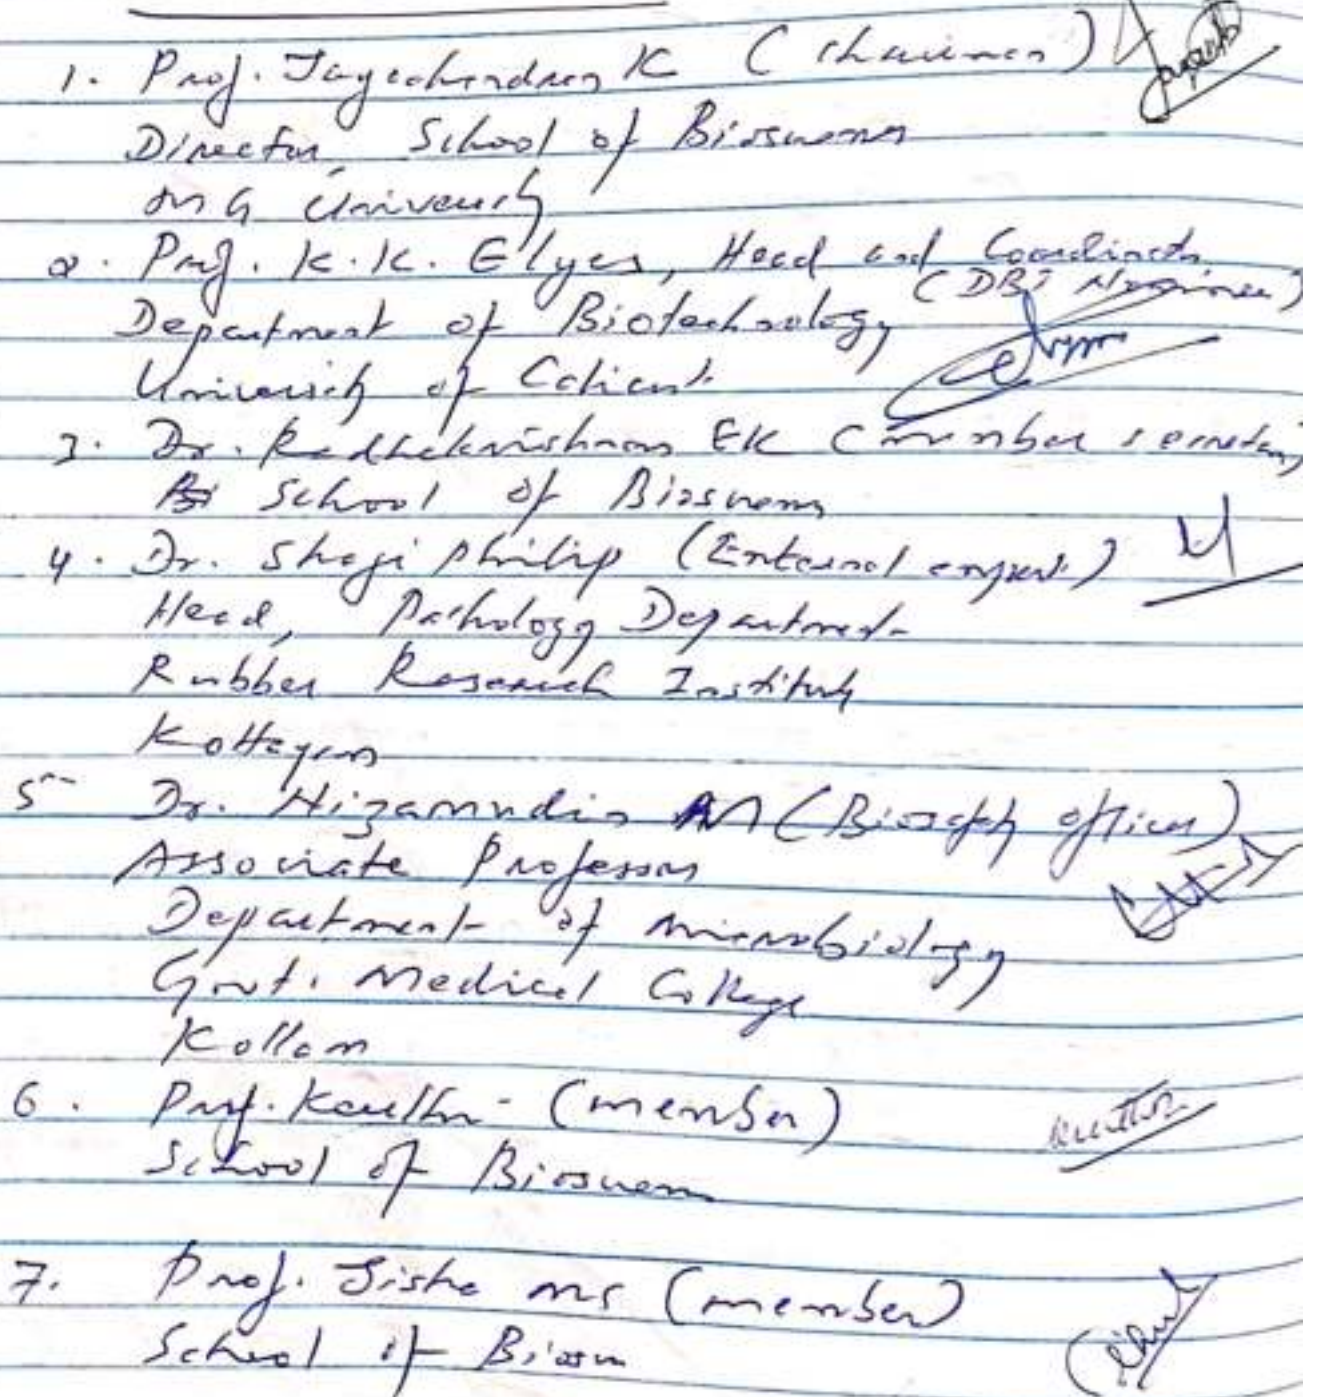 1. Prof. Jayachandran K (Chairman)
Director, School of Biosciences
MG University
2. Prof. K.K. Elyas, Head and Coordinator
(DBT Nominee)
Department of Biotechnology
University of Calicut
3. Dr. Radhakrishnan EK (member secretary
School of Biosciences
4. Dr. Shaji Philip (External expert)
Head, Pathology Department
Rubber Research Institute
Kottayam
5 Dr. Nizamudin M (Biosafety officer)
Associate Professor
Department of Microbiology
Govt. Medical College
Kollam
6. Prof. (member)
School of Biosciences
7. Prof. Jisha MS (member)
School of Bios